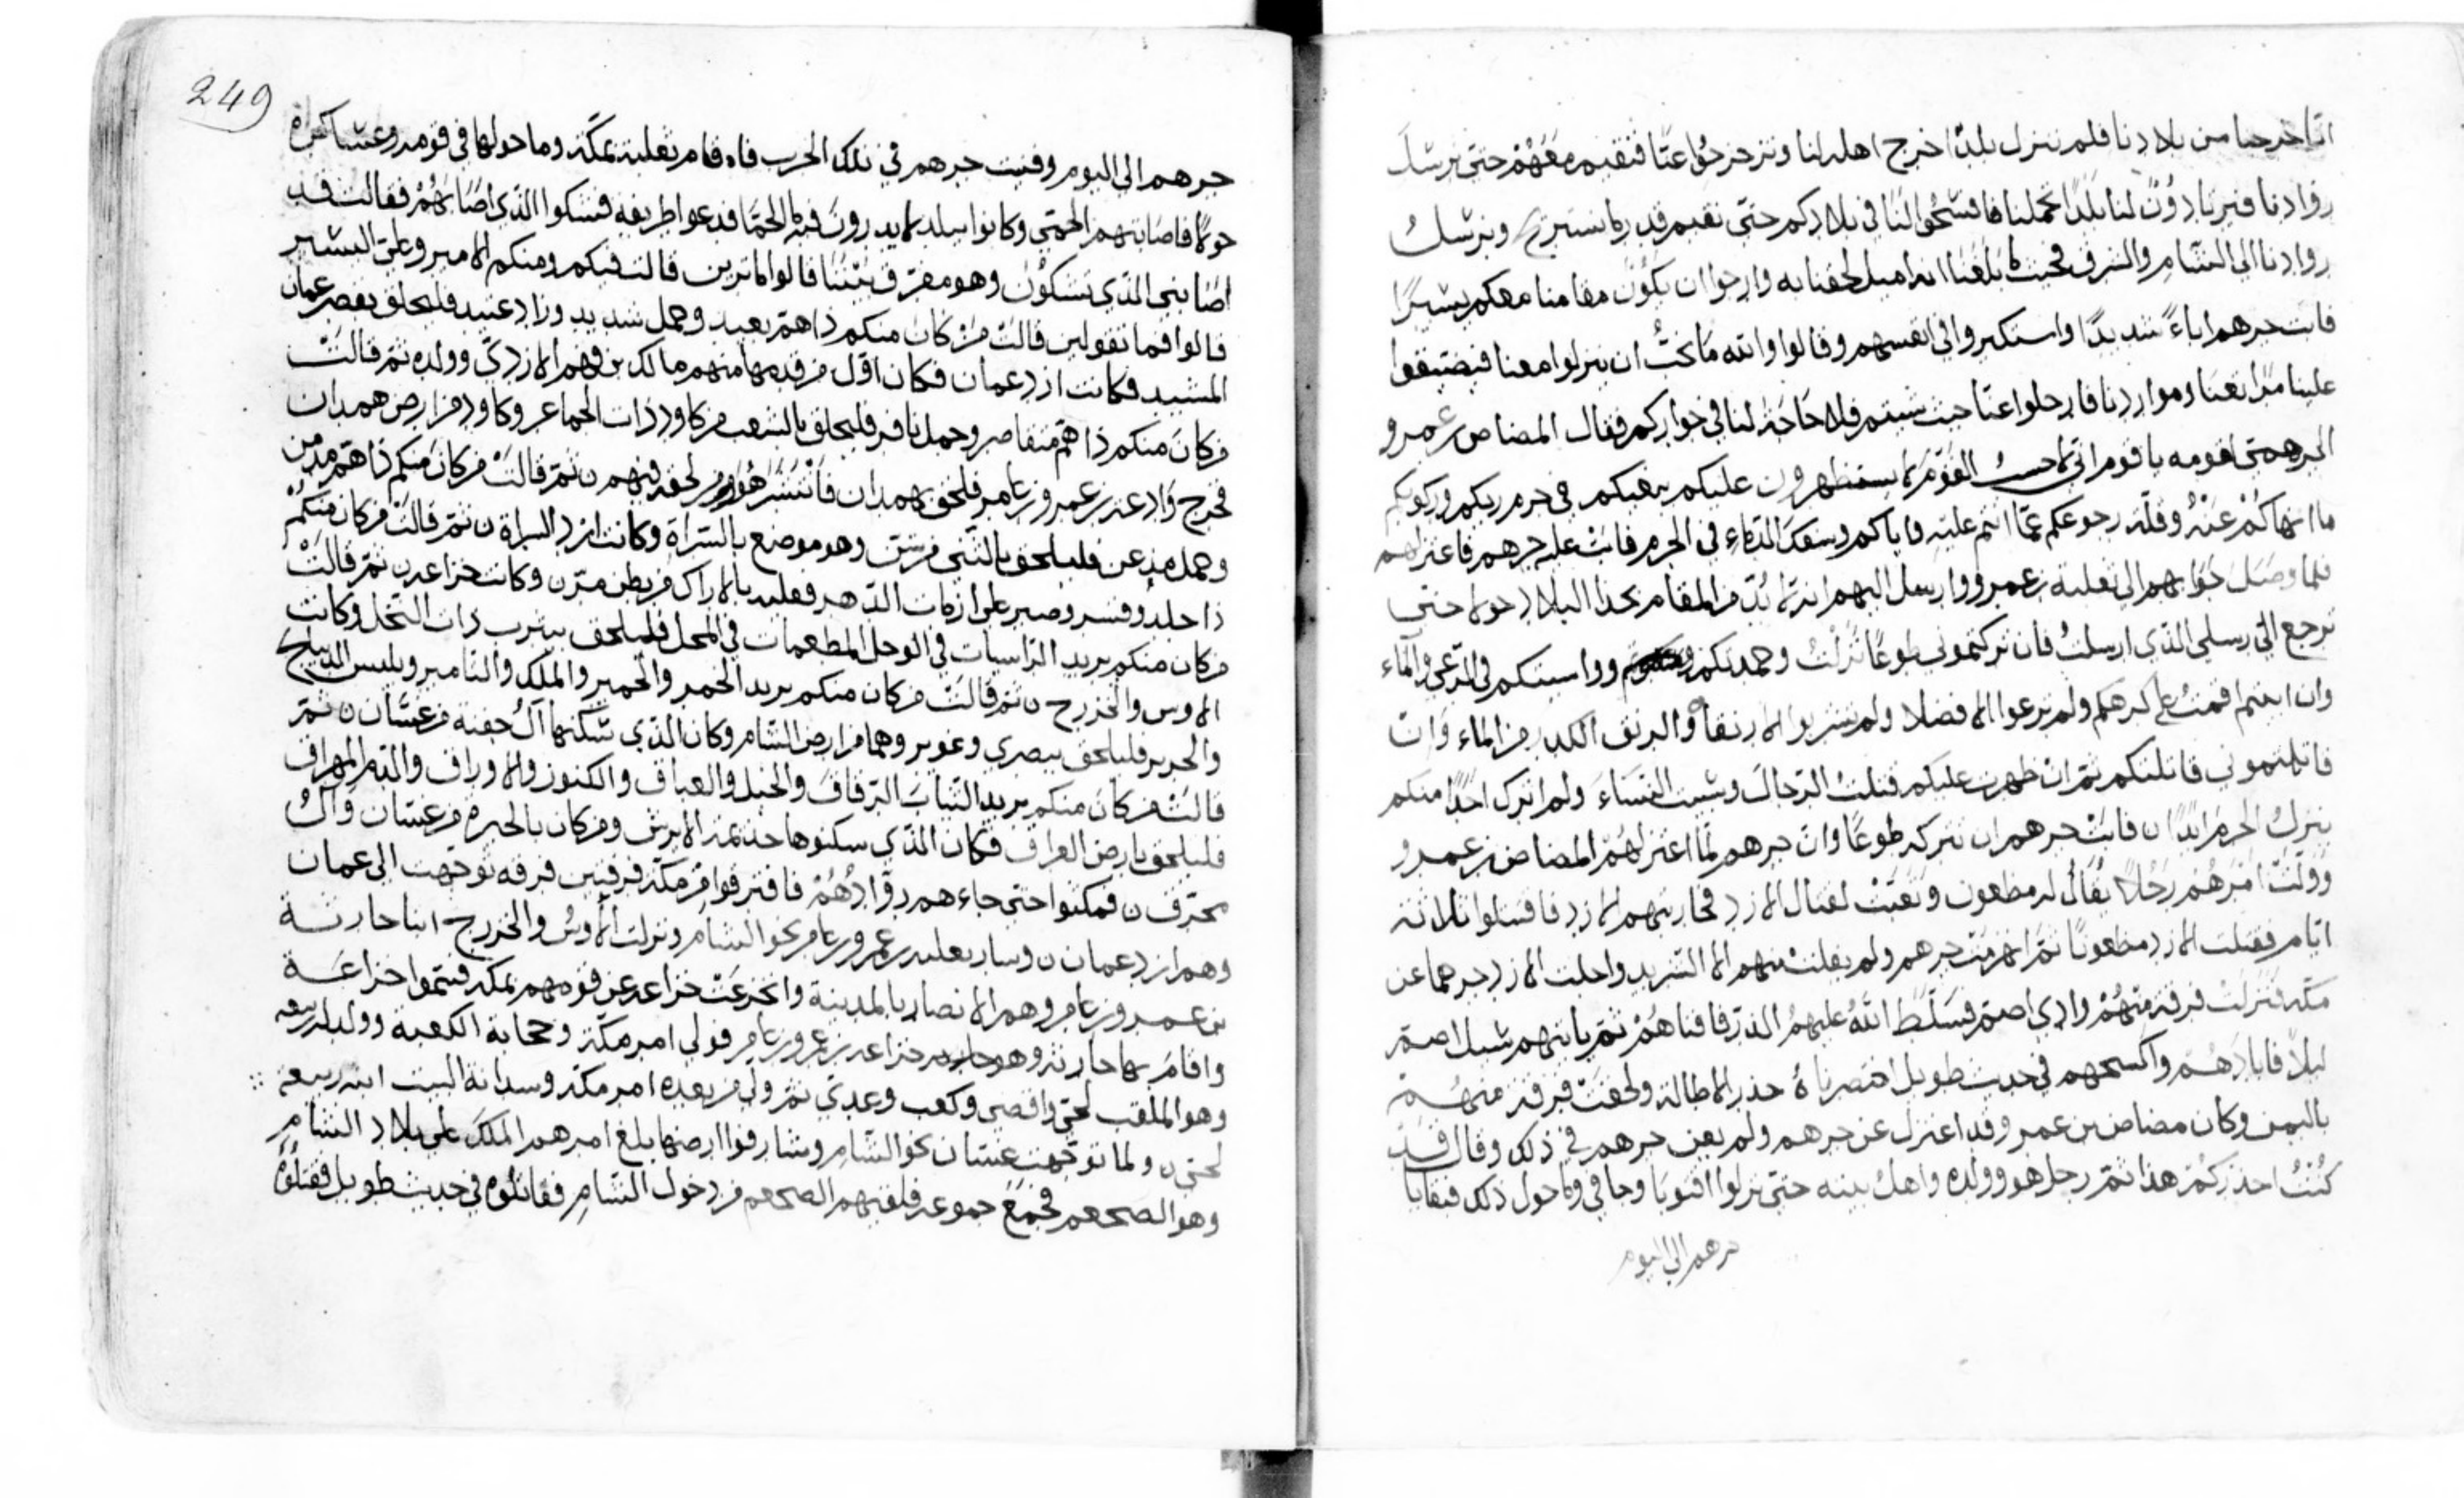 انا خرجنا من بلادنا فلم ننزل بلدًا خرج اهله لنا وتزحزحوا عنّا فنقيم معهم حتى نرسل
روادنا فيرتادون لنا بلدًا تحملنا فافسحوا لنا في بلادكم حتى نقيم قدر ما نستريح ونرسل
روادنا الى الشام والشرق فحيث ما بلغنا انه امثل لحقنا به وارجوا ان يكون مقامنا معكم يسيرًا
فابت جرهم اباءً شديدًا واستكبروا في انفسهم وقالوا والله ما نحب ان ينزلوا معنا فيضيقوا
علينا مرابعنا ومواردنا فارحلوا عنّا حيث شئتم فلا حاجة لنا في جواركم فقال المضاض بن عمرو
الجرهمي لقومه يا قوم اني لاحسب القوم سيظهرون عليكم ببغيكم في حرم ربكم وركوبكم
ما انهاكم عنه وقلة رجوعكم عمّا انتم عليه واياكم وسفك الدماء في الحرم فابت عليه جرهم فاعتزلهم
فلما وصل جوابهم الى ثعلبة بن عمرو وارسل اليهم انه لا بد من المقام بهذا البلاد حولا حتى
ترجع الي رسلي الذي ارسلت فان تركتموني طوعًا نزلت وحمدتكم وواسيتكم في الرعي والماء
وان ابيتم اقمت على كرهكم ولم ترعوا الا فضلا ولم تشربوا الا رنقا والرنق الكدر من الماء وان
قاتلتموني قاتلتكم ثم ان ظهرت عليكم قتلت الرجال وسبيت النساء ولم اترك احدًا منكم
ينزل الحرم ابدًا ن فابت جرهم ان تتركه طوعًا وان جرهم لما اعتزلهم المضاض بن عمرو
وولّت امرهم رجلا يقال له مظعون وتعبّت لقتال الازد فحاربتهم الازد فاقتتلوا ثلاثة
ايام فقتلت الازد مظعونا ثم انهزمت جرهم ولم يفلت منهم الا الشريد واجلت الازد جرهما عن
مكة فنزلت فرقة منهم وادي اضم فسلط الله عليهم الذر فافناهم ثم باتهم سيل اضم
ليلا فابادهم واكسحهم في حديث طويل اختصرناه حذر الاطالة ولحقت فرقة منهم
باليمن وكان مضاض بن عمرو قد اعتزل عن جرهم ولم يعن جرهم في ذلك وقال قد
كنت احذركم هذا ثم رحل هو وولده واهل بيته حتى نزلوا اقنوبا وجا في وما حول ذلك فبقايا
جرهم الى اليوم
249
جرهم الى اليوم وفنيت جرهم في تلك الحرب فاه قام ثعلبة بمكة وما حولها في قومه وعساكره
حولا فاصابتهم الحمى وكانوا ببلد لا يدرون فيه الحمّا فدعوا طريفه فشكوا الذي اصابهم فقالت قد
اصابني الذي تشكون وهو مفرق بيننا قالوا ما ترين قالت فيكم ومنكم الامير وعلى التسيير
قالوا فما تقولين قالت من كان منكم ذا هم بعيد وحمل شديد وزاد عتيد فليلحق بقصر عمان
المشيد فكانت ازد عمان فكان اول من قدمها منهم مالك بن فهم الازدي وولده ثم قالت
من كان منكم ذا هم متقاصر وحمل نافر فليلحق بالشعب من كاود ذات الجماعر وكاود من ارض همدان
فخرج وادعة بن عمرو بن عامر فلحق بهمدان فانتشر هو ومن لحقه فيهم ن ثم قالت من كان منكم ذا هم مدمن
وحمل مذعن فليلحق بالثني من شن وهو موضع بالسراة وكانت ازد السراة ن ثم قالت من كان منكم
ذا جلد وقسر وصبر على ازمات الدهر فعليه بالاراك من بطن مرّ ن وكانت خزاعة ن ثم قالت
من كان منكم يريد الراسيات في الوحل المطعمات في المحل فليلحق بيثرب ذات النخل وكانت
الاوس والخزرج ن ثم قالت من كان منكم يريد الخمر والخمير والملك والتامير ويلبس الديباج
والحرير فليلحق ببصرى وغوير وهما من ارض الشام وكان الذي سكنها آل جفنة من غسّان ن ثم
قالت من كان منكم يريد الثياب الرقاق والخيل والعتاق والكنوز والاوراق والدم المهراق
فليلحق بارض العراق فكان الذي سكنوها جذيمة الابرش ومن كان بالحيرة من غسّان وآل
محرق ن فمكثوا حتى جاءهم روّادهم فافترقوا من مكة فرقتين فرقه توجهت الى عمان
وهم ازد عمان ن وسار ثعلبة بن عمرو بن عامر نحو الشام ونزلت الاوس والخزرج ابنا حارثة
بن عمرو بن عامر وهم الانصار بالمدينة وانخزعت خزاعه عن قومهم بمكة فسموا خزاعة
واقام بها حارثه وهو خزاعه بن عمرو بن عامر فولي امر مكة وحجابة الكعبة وولد له ربيعه
وهو الملقب لحي وافصى وكعب وعدي ثم ولي من بعده امر مكة وسدانة البيت ابنه ربيعة
لحي ن ولما توجهت غسّان نحو الشام وشارفوا ارضها بلغ امرهم الملك على بلاد الشام
وهو الضجعم فجمع جموعه فلقيهم الضجعم من دخول الشام فقاتلوه في حديث طويل فقتلوه